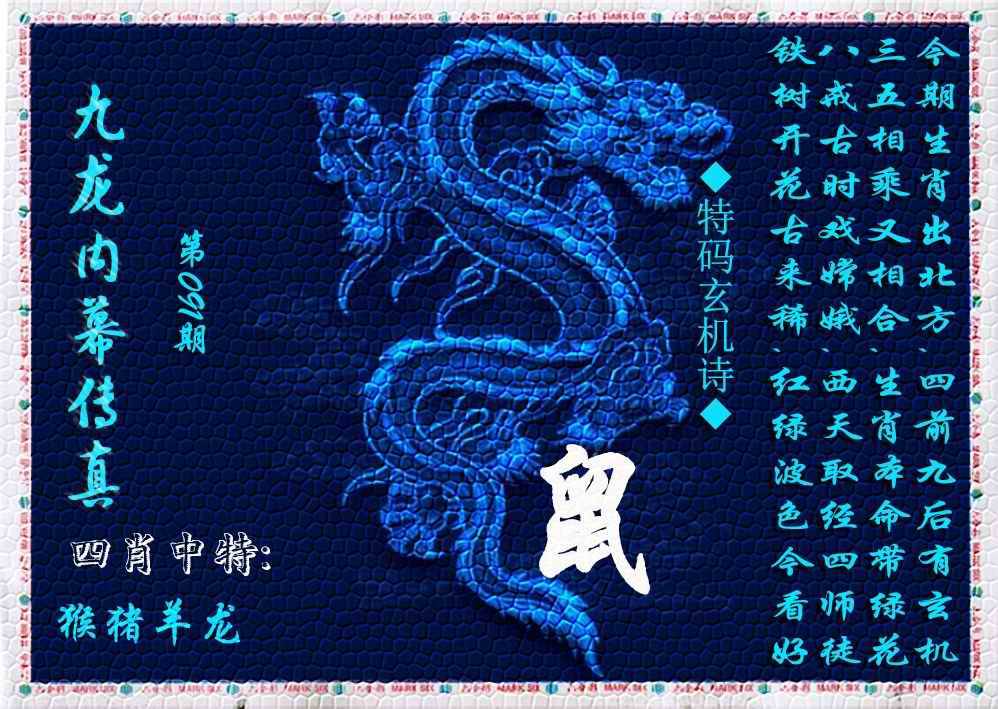 今期生肖出北方、四前九后有玄机
三五相乘又相合、生肖本命带绿花
八戒古时戏嫦娥、西天取经四师徒
铁树开花古来稀、红绿波色今看好
◆特码玄机诗◆
鼠
第160期
九龙内幕传真
四肖中特:
猴猪羊龙